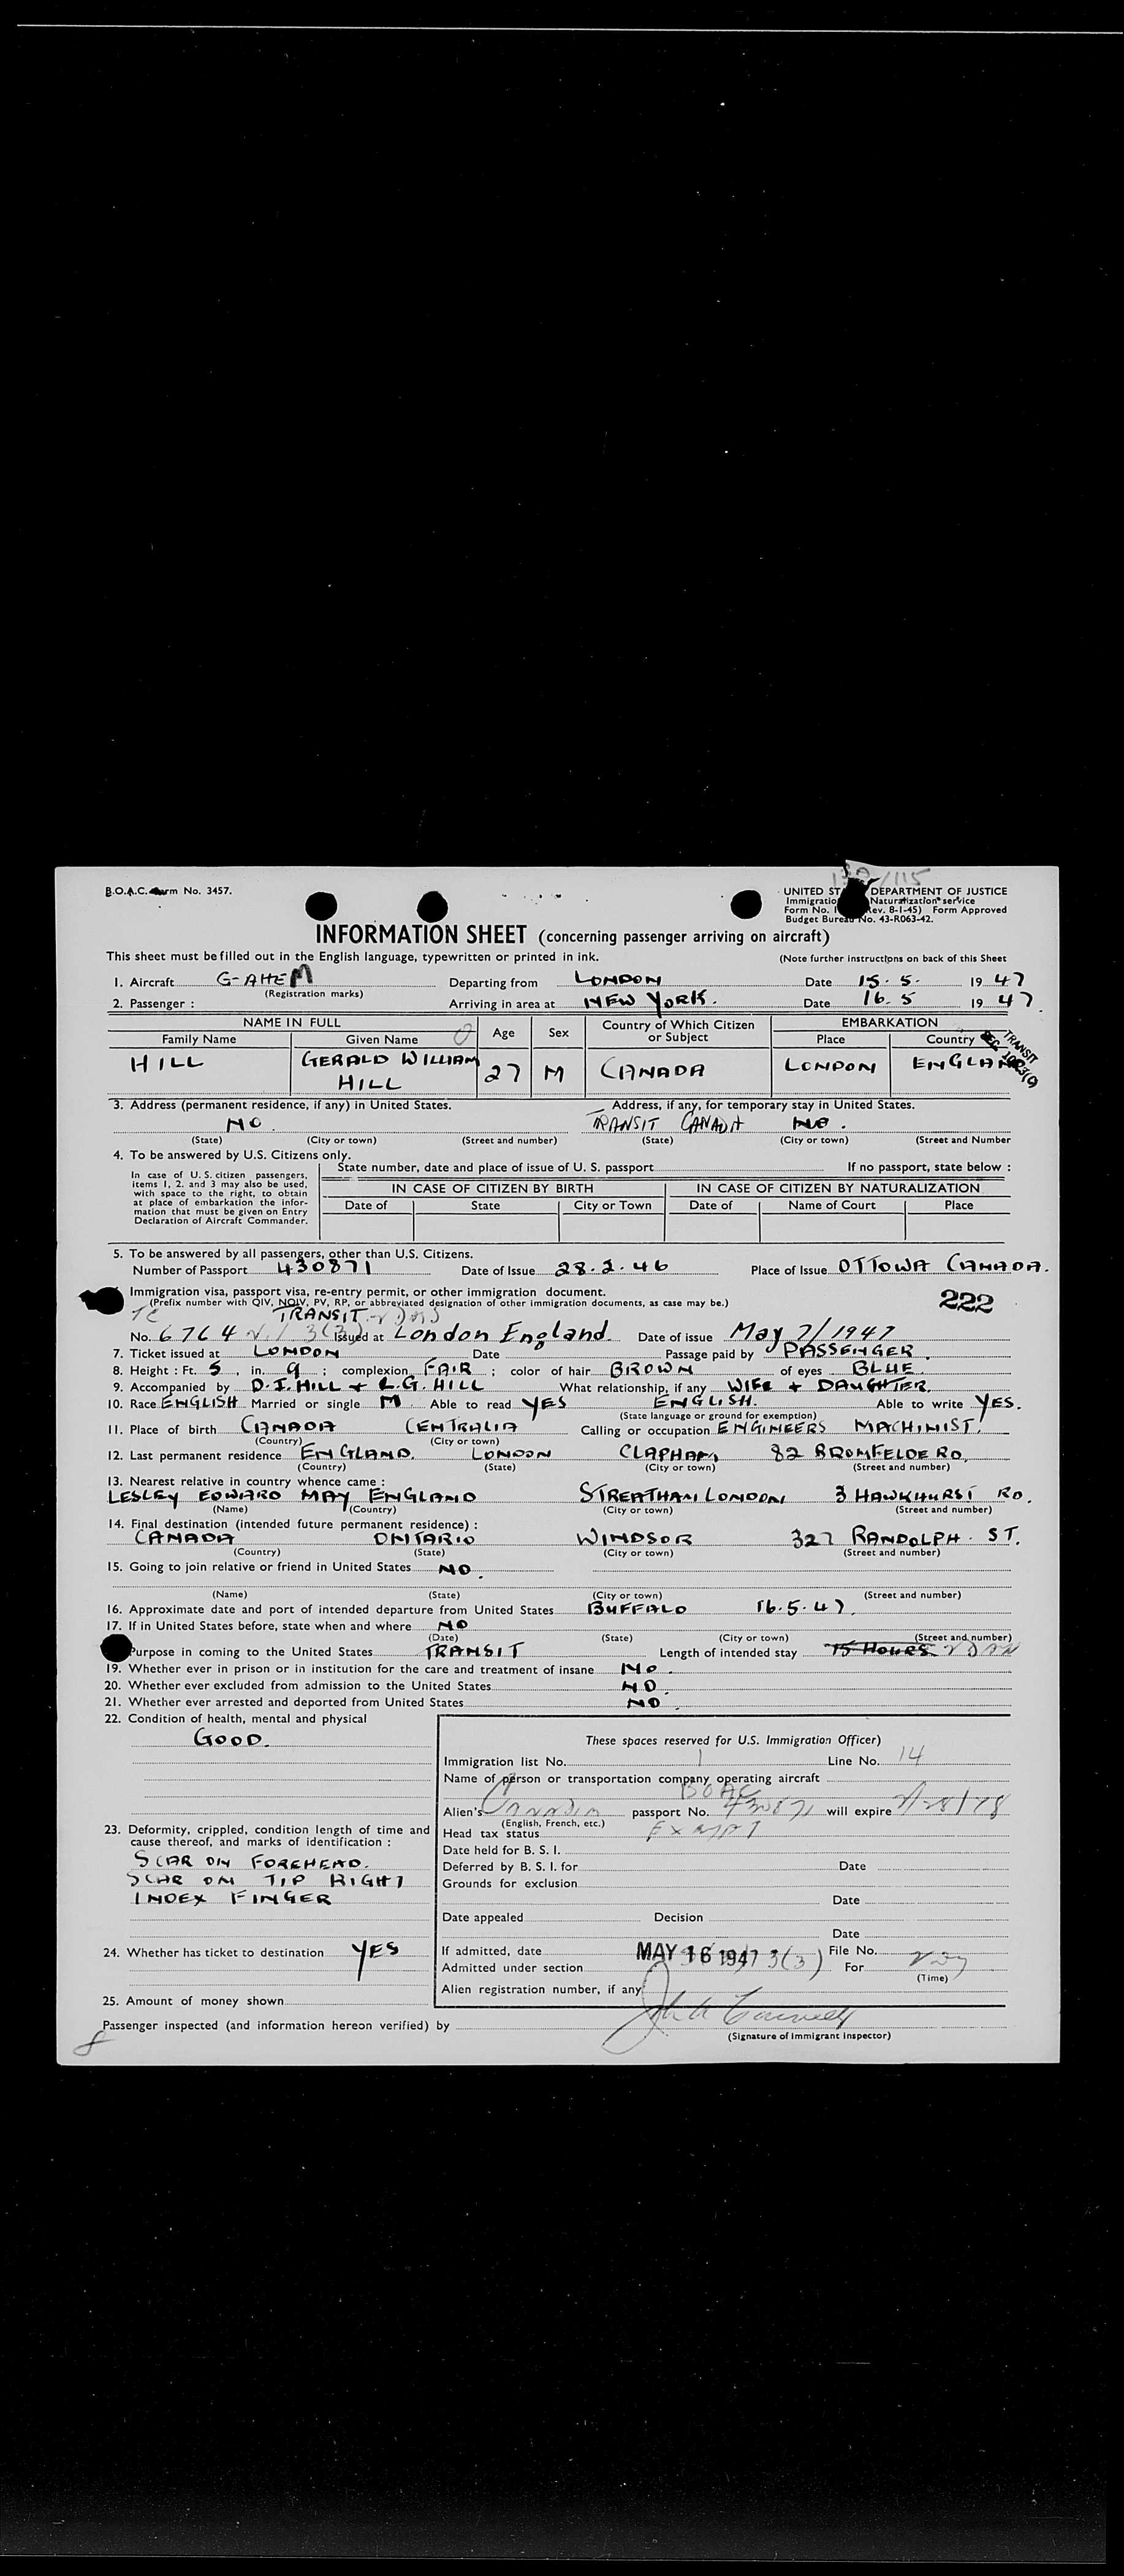 B.O.A.C. Form No. 3457.
UNITED STATES DEPARTMENT OF JUSTICE
Immigration Naturalization service
Form No. I (Rev. 8-1-45) Form Approved
Budget Bureau No. 43-R063-42.
INFORMATION SHEET (concerning passenger arriving on aircraft)
This sheet must be filled out in the English language, typewritten or printed in ink. (Note further instructions on back of this Sheet
1. Aircraft G-AHEM Departing from LONDON Date 15. 5. 19 47
(Registration marks)
2. Passenger : Arriving in area at NEW YORK. Date 16. 5 19 47
NAME IN FULL Age Sex Country of Which Citizen or Subject EMBARKATION
Family Name Given Name Place Country
TRANSIT
HILL GERALD WILLIAM HILL 27 M CANADA LONDON ENGLAND
3. Address (permanent residence, if any) in United States. Address, if any, for temporary stay in United States.
NO. TRANSIT CANADA NO.
(State) (City or town) (Street and number) (State) (City or town) (Street and Number
4. To be answered by U.S. Citizens only.
In case of U.S. citizen passengers, items 1, 2. and 3 may also be used, with space to the right, to obtain at place of embarkation the information that must be given on Entry Declaration of Aircraft Commander.
State number, date and place of issue of U. S. passport If no passport, state below :
IN CASE OF CITIZEN BY BIRTH IN CASE OF CITIZEN BY NATURALIZATION
Date of State City or Town Date of Name of Court Place
5. To be answered by all passengers, other than U.S. Citizens.
Number of Passport 430871 Date of Issue 28.2.46 Place of Issue OTTOWA CANADA.
Immigration visa, passport visa, re-entry permit, or other immigration document.
(Prefix number with QIV, NQIV, PV, RP, or abbreviated designation of other immigration documents, as case may be.)
222
TRANSIT
No. 6764 3(3) Issued at London England. Date of issue May 7/1947
7. Ticket issued at LONDON Date Passage paid by PASSENGER.
8. Height : Ft. 5, in. 9 ; complexion FAIR ; color of hair BROWN of eyes BLUE
9. Accompanied by D.I. HILL + L.G. HILL What relationship, if any WIFE + DAUGHTER.
10. Race ENGLISH Married or single M Able to read YES ENGLISH. Able to write YES.
(State language or ground for exemption)
11. Place of birth CANADA CENTRALIA Calling or occupation ENGINEERS MACHINIST.
(Country) (City or town)
12. Last permanent residence ENGLAND. LONDON CLAPHAM 82 BROMFELDE RD.
(Country) (State) (City or town) (Street and number)
13. Nearest relative in country whence came :
LESLEY EDWARD MAY ENGLAND STREATHAM LONDON 3 HAWKHURST RD.
(Name) (Country) (City or town) (Street and number)
14. Final destination (intended future permanent residence) :
CANADA ONTARIO WINDSOR 327 RANDOLPH. ST.
(Country) (State) (City or town) (Street and number)
15. Going to join relative or friend in United States NO.
(Name) (State) (City or town) (Street and number)
16. Approximate date and port of intended departure from United States BUFFALO 16.5.47.
17. If in United States before, state when and where NO
(Date) (State) (City or town) (Street and number)
Purpose in coming to the United States TRANSIT Length of intended stay 15 HOURS
19. Whether ever in prison or in institution for the care and treatment of insane NO.
20. Whether ever excluded from admission to the United States NO.
21. Whether ever arrested and deported from United States NO.
22. Condition of health, mental and physical
GOOD.
These spaces reserved for U.S. Immigration Officer)
Immigration list No. 1 Line No. 14
Name of person or transportation company operating aircraft
BOAC
Alien's Canadian passport No. 430871 will expire
(English, French, etc.)
23. Deformity, crippled, condition length of time and cause thereof, and marks of identification :
SCAR ON FOREHEAD.
SCAR ON TIP RIGHT
INDEX FINGER
Head tax status Exempt
Date held for B. S. I.
Deferred by B. S. I. for Date
Grounds for exclusion
Date
Date appealed Decision
Date
24. Whether has ticket to destination YES
If admitted, date MAY 16 1947 File No.
Admitted under section 3(3) For
(Time)
Alien registration number, if any
25. Amount of money shown
Passenger inspected (and information hereon verified) by
(Signature of Immigrant Inspector)
8